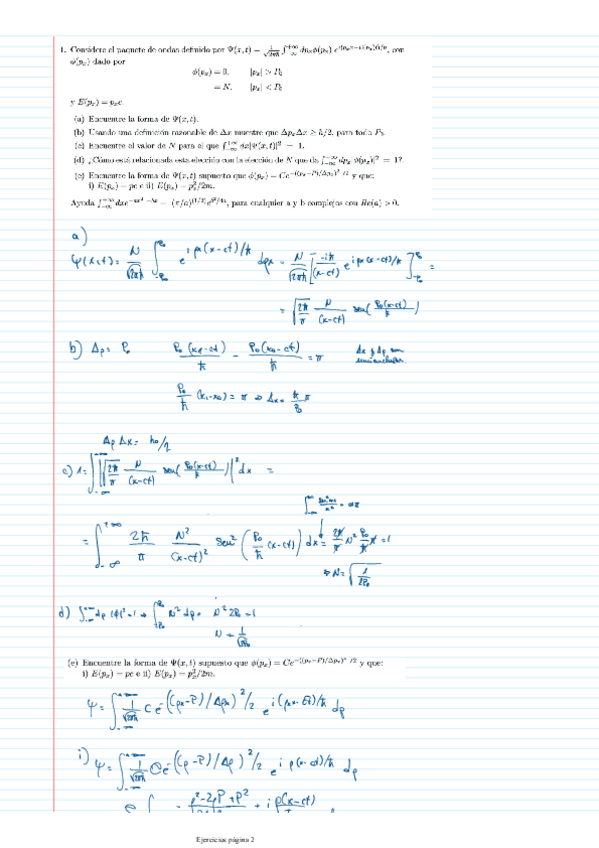 1. Considere el paquete de ondas definido por Ψ(x,t) = 1/√2πħ ∫_{-∞}^{+∞} dp_x φ(p_x) e^{i(p_x x - E(p_x)t)/ħ}, con
φ(p_x) dado por
φ(p_x) = 0, |p_x| > P_0
= N, |p_x| < P_0
y E(p_x) = p_x c.
(a) Encuentre la forma de Ψ(x,t).
(b) Usando una definición razonable de Δx muestre que Δp_x Δx ≥ ħ/2, para todo P_0.
(c) Encuentre el valor de N para el que ∫_{-∞}^{+∞} dx|Ψ(x,t)|² = 1.
(d) ¿Cómo está relacionada esta elección con la elección de N que da ∫_{-∞}^{+∞} dp_x |φ(p_x)|² = 1?.
(e) Encuentre la forma de Ψ(x,t) supuesto que φ(p_x) = Ce^{-((p_x-P)/Δp_x)²/2} y que:
i) E(p_x) = pc e ii) E(p_x) = p_x²/2m.
para cualquier a y b complejos con Re(a) > 0.
a)
Ψ(x,t) = N/√2πħ ∫_{-P_0}^{P_0} e^{i px(x-ct)/ħ} dpx = N/√2πħ [ -iħ/(x-ct) e^{i px(x-ct)/ħ} ]_{-P_0}^{P_0} =
= √(2ħ/π) N/(x-ct) sen( P_0(x-ct)/ħ )
b) Δp = P_0
P_0/ħ (x_1-x_0) = π ⇒ Δx = ħ/P_0 π
Δp Δx =
c) 1 = ∫_{-∞}^{∞} | √(2ħ/π) N/(x-ct) sen( P_0(x-ct)/ħ ) |² dx =
= ∫_{-∞}^{+∞} 2ħ/π N²/(x-ct)² sen² ( P_0/ħ (x-ct) ) dx = 2ħ/π N² P_0/ħ π = 1
⇒ N = √(1/2P_0)
d) ∫_{-∞}^{∞} dp |φ|² = 1 → ∫_{-P_0}^{P_0} N² dp = N² 2P_0 = 1
(e) Encuentre la forma de Ψ(x,t) supuesto que φ(p_x) = Ce^{-((p_x-P)/Δp_x)²/2} y que:
i) E(p_x) = pc e ii) E(p_x) = p_x²/2m.
Ψ = ∫_{-∞}^{+∞} 1/√2πħ C e^{-((px-P)/Δpx)²/2} e^{i(px x-Et)/ħ} dp
i) Ψ = ∫_{-∞}^{+∞} 1/√2πħ C e^{-((p-P)/Δp)²/2} e^{i p(x-ct)/ħ} dp
p²-2pP+P² + i p(x-ct)
Ejercicios página 2